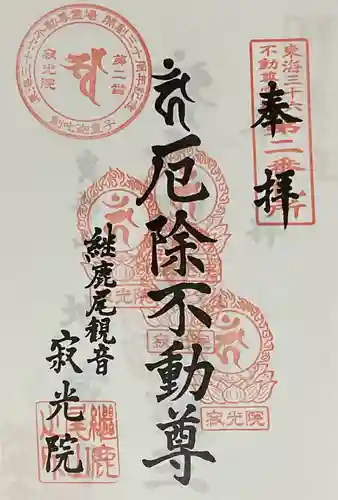 奉拝
東海三十六
不動尊
第二番札所
厄除不動尊
継鹿尾観音
寂光院
第二番
寂光院
寂光院
寂光院
寂光院